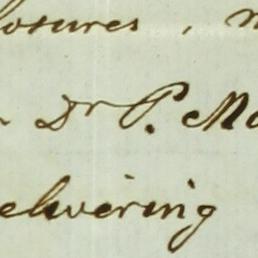 losures, m
Dr P. Mc
elivering